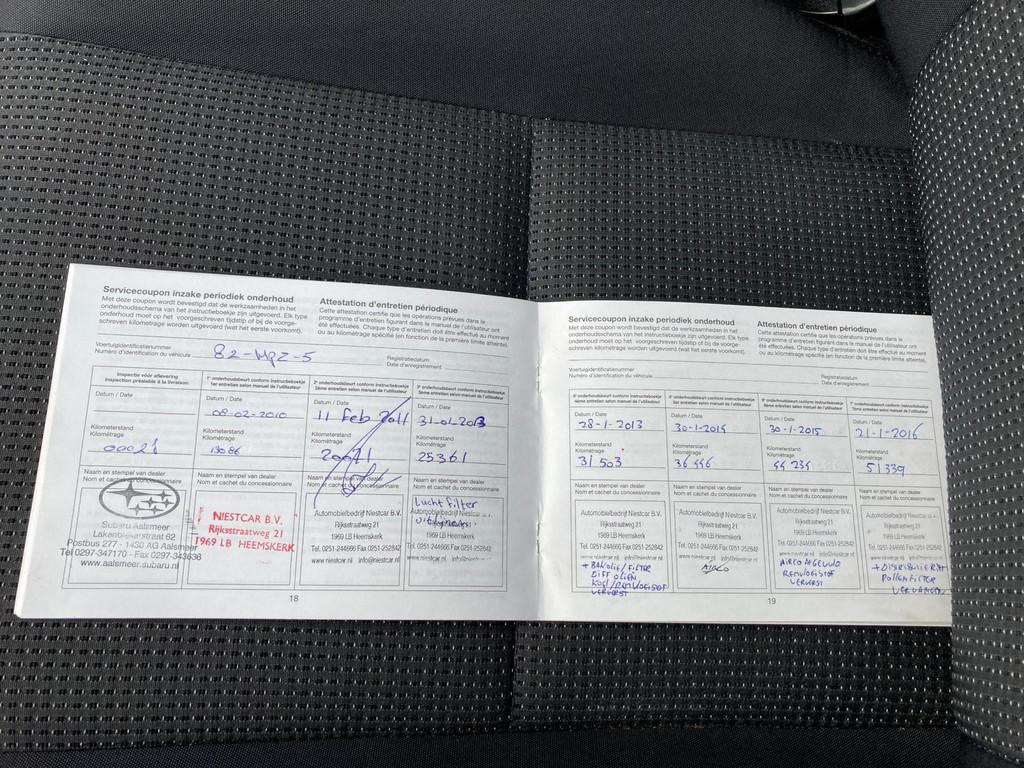 Servicecoupon inzake periodiek onderhoud
Met deze coupon wordt bevestigd dat de werkzaamheden in het
onderhoudsschema van het instructieboekje zijn uitgevoerd. Elk type
onderhoud moet op het voorgeschreven tijdstip of bij de voorge-
schreven kilometrage worden uitgevoerd (wat het eerste voorkomt).
Attestation d'entretien périodique
Cette attestation certifie que les opérations prévues dans le
programme d'entretien figurant dans le manuel de l'utilisateur ont
été effectuées. Chaque type d'entretien doit être effectué au moment
ou au kilométrage spécifié (en fonction de la première limite atteinte).
Voertuigidentificatienummer
Numéro d'identification du véhicule 82-MPZ-5
Registratiedatum
Date d'enregistrement
Inspectie vóór aflevering
Inspection préalable à la livraison
Datum / Date
Kilometerstand
Kilométrage
00021
Naam en stempel van dealer
Nom et cachet du concessionnaire
SUBARU
Subaru Aalsmeer
Lakenblekerstraat 62
Postbus 277 - 1430 AG Aalsmeer
Tel 0297-347170 - Fax 0297-343636
www.aalsmeer.subaru.nl
1e onderhoudsbeurt conform instructieboekje
1er entretien selon manuel de l'utilisateur
Datum / Date
08-02-2010
Kilometerstand
Kilométrage
13086
Naam en stempel van dealer
Nom et cachet du concessionnaire
NIESTCAR B.V.
Rijksstraatweg 21
1969 LB HEEMSKERK
2e onderhoudsbeurt conform instructieboekje
2ème entretien selon manuel de l'utilisateur
Datum / Date
11 feb 2011
Kilometerstand
Kilométrage
Naam en stempel van dealer
Nom et cachet du concessionnaire
Automobielbedrijf Niestcar B.V.
Rijksstraatweg 21
1969 LB Heemskerk
Tel. 0251-244666 Fax 0251-252842
www.niestcar.nl info@niestcar.nl
3e onderhoudsbeurt conform instructieboekje
3ème entretien selon manuel de l'utilisateur
Datum / Date
31-01-2013
Kilometerstand
Kilométrage
25361
Naam en stempel van dealer
Nom et cachet du concessionnaire
Lucht filter
Automobielbedrijf Niestcar
Rijksstraatweg 21
1969 LB Heemskerk
Tel. 0251-244666 Fax 0251-252842
www.niestcar.nl info@niestcar.nl
18
Servicecoupon inzake periodiek onderhoud
Met deze coupon wordt bevestigd dat de werkzaamheden in het
onderhoudsschema van het instructieboekje zijn uitgevoerd. Elk type
onderhoud moet op het voorgeschreven tijdstip of bij de voorge-
schreven kilometrage worden uitgevoerd (wat het eerste voorkomt).
Attestation d'entretien périodique
Cette attestation certifie que les opérations prévues dans le
programme d'entretien figurant dans le manuel de l'utilisateur ont
été effectuées. Chaque type d'entretien doit être effectué au moment
ou au kilométrage spécifié (en fonction de la première limite atteinte).
Voertuigidentificatienummer
Numéro d'identification du véhicule
Registratiedatum
Date d'enregistrement
4e onderhoudsbeurt conform instructieboekje
4ème entretien selon manuel de l'utilisateur
Datum / Date
28-1-2013
Kilometerstand
Kilométrage
31503
Naam en stempel van dealer
Nom et cachet du concessionnaire
Automobielbedrijf Niestcar B.V.
Rijksstraatweg 21
1969 LB Heemskerk
Tel. 0251-244666 Fax 0251-252842
www.niestcar.nl info@niestcar.nl
+ BAK olie / FILTER
DIFF OLIEN
KOEL/REMVLOEISTOF
VERVERST
5e onderhoudsbeurt conform instructieboekje
5er entretien selon manuel de l'utilisateur
Datum / Date
30-1-2014
Kilometerstand
Kilométrage
36446
Naam en stempel van dealer
Nom et cachet du concessionnaire
Automobielbedrijf Niestcar B.V.
Rijksstraatweg 21
1969 LB Heemskerk
Tel. 0251-244666 Fax 0251-252842
www.niestcar.nl info@niestcar.nl
AIRCO
6e onderhoudsbeurt conform instructieboekje
6ème entretien selon manuel de l'utilisateur
Datum / Date
30-1-2015
Kilometerstand
Kilométrage
44234
Naam en stempel van dealer
Nom et cachet du concessionnaire
Automobielbedrijf Niestcar B.V.
Rijksstraatweg 21
1969 LB Heemskerk
Tel. 0251-244666 Fax 0251-252842
www.niestcar.nl info@niestcar.nl
AIRCO GEVULD
REMVLOEISTOF
VERVERST
7e onderhoudsbeurt conform instructieboekje
7ème entretien selon manuel de l'utilisateur
Datum / Date
21-1-2016
Kilometerstand
Kilométrage
51339
Naam en stempel van dealer
Nom et cachet du concessionnaire
Automobielbedrijf Niestcar B.V.
Rijksstraatweg 21
1969 LB Heemskerk
Tel. 0251-244666 Fax 0251-252842
www.niestcar.nl info@niestcar.nl
POLLEN FILTER
VERVANGEN
19